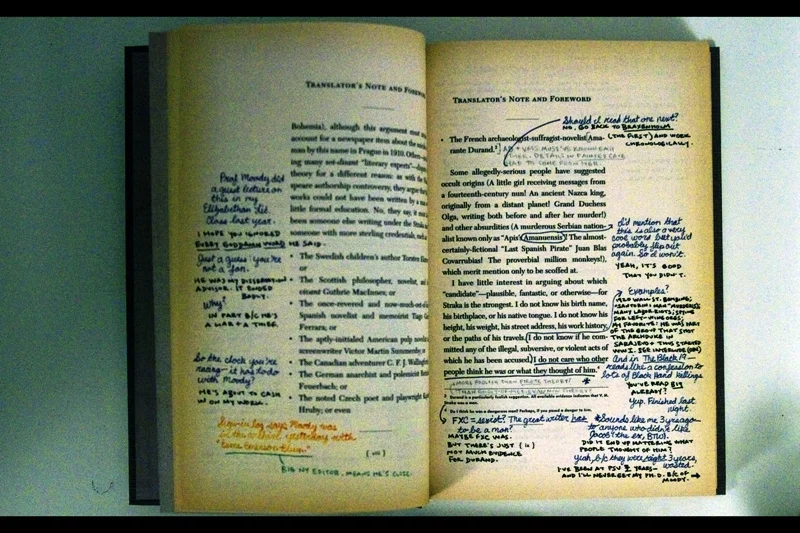 TRANSLATOR'S NOTE AND FOREWO
Bohemia), although this argument must
account for a newspaper item about the
man by this name in Prague in 1910. Others
ing many self-titled "literary experts"
theory for a different reason: as with the
speare authorship controversy, they argue
works could not have been written by a
little formal education. No, they say, it
been someone else writing under the
someone with more sterling credentials,
• The Swedish children's author Torsten
or
• The Scottish philosopher, novelist,
Guthrie MacInnes; or
• The once-revered and now-much-
Spanish novelist and memoirist
Ferrara; or
• The aptly-initialed American pulp
screenwriter Victor Martin Summersby;
• The Canadian adventurer C. F. J. Wallingf
• The German anarchist and polemicist
Feuerbach; or
• The noted Czech poet and playwright
Hruby; or even
Prof. Moody did
a guest lecture on
this in my
Elizabethan Lit
class last year.
I HOPE YOU IGNORED
EVERY GODDAMN WORD HE SAID.
Just a guess: you're
not a fan.
HE WAS MY DISSERTATION
ADVISOR. IT ENDED
BADLY.
Why?
IN PART B/C HE'S
A LIAR + A THIEF.
So the clock you're
racing—it has to do
with Moody?
HE'S ABOUT TO CASH
IN ON MY WORK.
says Moody was
yesterday with
BIG NY EDITOR. MEANS HE'S CLOSE.
TRANSLATOR'S NOTE AND FOREWORD
Should I read that one next?
NO, GO BACK TO BRAXENHOLM
(THE FIRST) AND WORK
CHRONOLOGICALLY.
• The French archaeologist-suffragist-novelist Ama-
rante Durand.³
VMS MUST'VE KNOWN EACH
OTHER. DETAILS IN PAINTED CAVE
HAD TO COME FROM HER
Some allegedly-serious people have suggested
occult origins (A little girl receiving messages from
a fourteenth-century nun! An ancient Nazca king,
originally from a distant planet! Grand Duchess
Olga, writing both before and after her murder!)
and other absurdities (A murderous Serbian nation-
alist known only as "Apis' Amanuensis"! The almost-
certainly-fictional "Last Spanish Pirate" Juan Blas
Covarrubias! The proverbial million monkeys!),
which merit mention only to be scoffed at.
I have little interest in arguing about which
"candidate"—plausible, fantastic, or otherwise—for
Straka is the strongest. I do not know his birth name,
his birthplace, or his native tongue. I do not know his
height, his weight, his street address, his work history,
or the paths of his travels. I do not know if he com-
mitted any of the illegal, subversive, or violent acts of
which he has been accused. I do not care who other
people think he was or what they thought of him.⁴
did mention that
this is also a very
cool word but you'd
probably flip out
again. So I won't.
YEAH, IT'S GOOD
THAT YOU DIDN'T.
Examples?
1920 WALL ST. BOMBING;
"SANTORINI MAN" MURDERS;
MANY LABOR RIOTS; SPYING
FOR LEFT-WING ORGS;
MY FAVORITE: HE WAS PART
OF THE GROUP THAT SHOT
THE ARCHDUKE IN
SARAJEVO + THUS STARTED
WWI.
And in The Black 19—
reads like a confession to
lots of Black Hand killings
YOU'VE READ B19
ALREADY?
Yup. Finished last
night.
MORE POPULAR THAN PIRATE THEORY!
3
4 Do I think he was a dangerous man? Perhaps, if you posed a danger to him.
FXC = sexist? The great writer has
to be a man?
MAYBE FXC WAS.
BUT THERE'S JUST
NOT MUCH EVIDENCE
FOR DURAND.
*Sounds like me 3 years ago
to anyone who didn't like
Jacob (the ex, BTW).
DID IT END UP MATTERING WHAT
PEOPLE THOUGHT OF HIM?
Yeah, b/c they were right. 3 years,
wasted.
I'VE BEEN AT PSU 8 YEARS—
AND I'LL NEVER GET MY PH.D. B/C OF
MOODY.